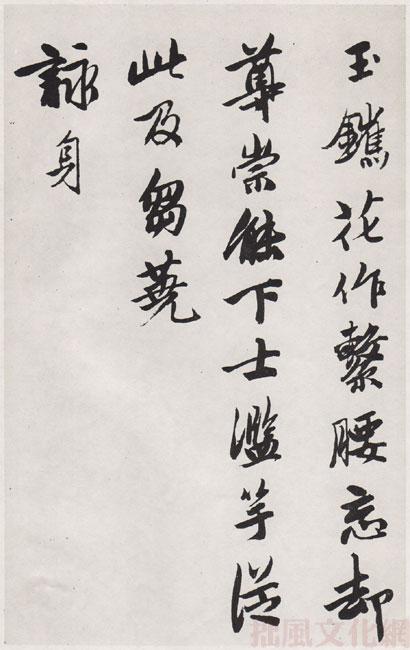 玉鐎花作繫腰忘却
尊崇能下士濫竽從
此及芻蕘
詠身
拙風文化網